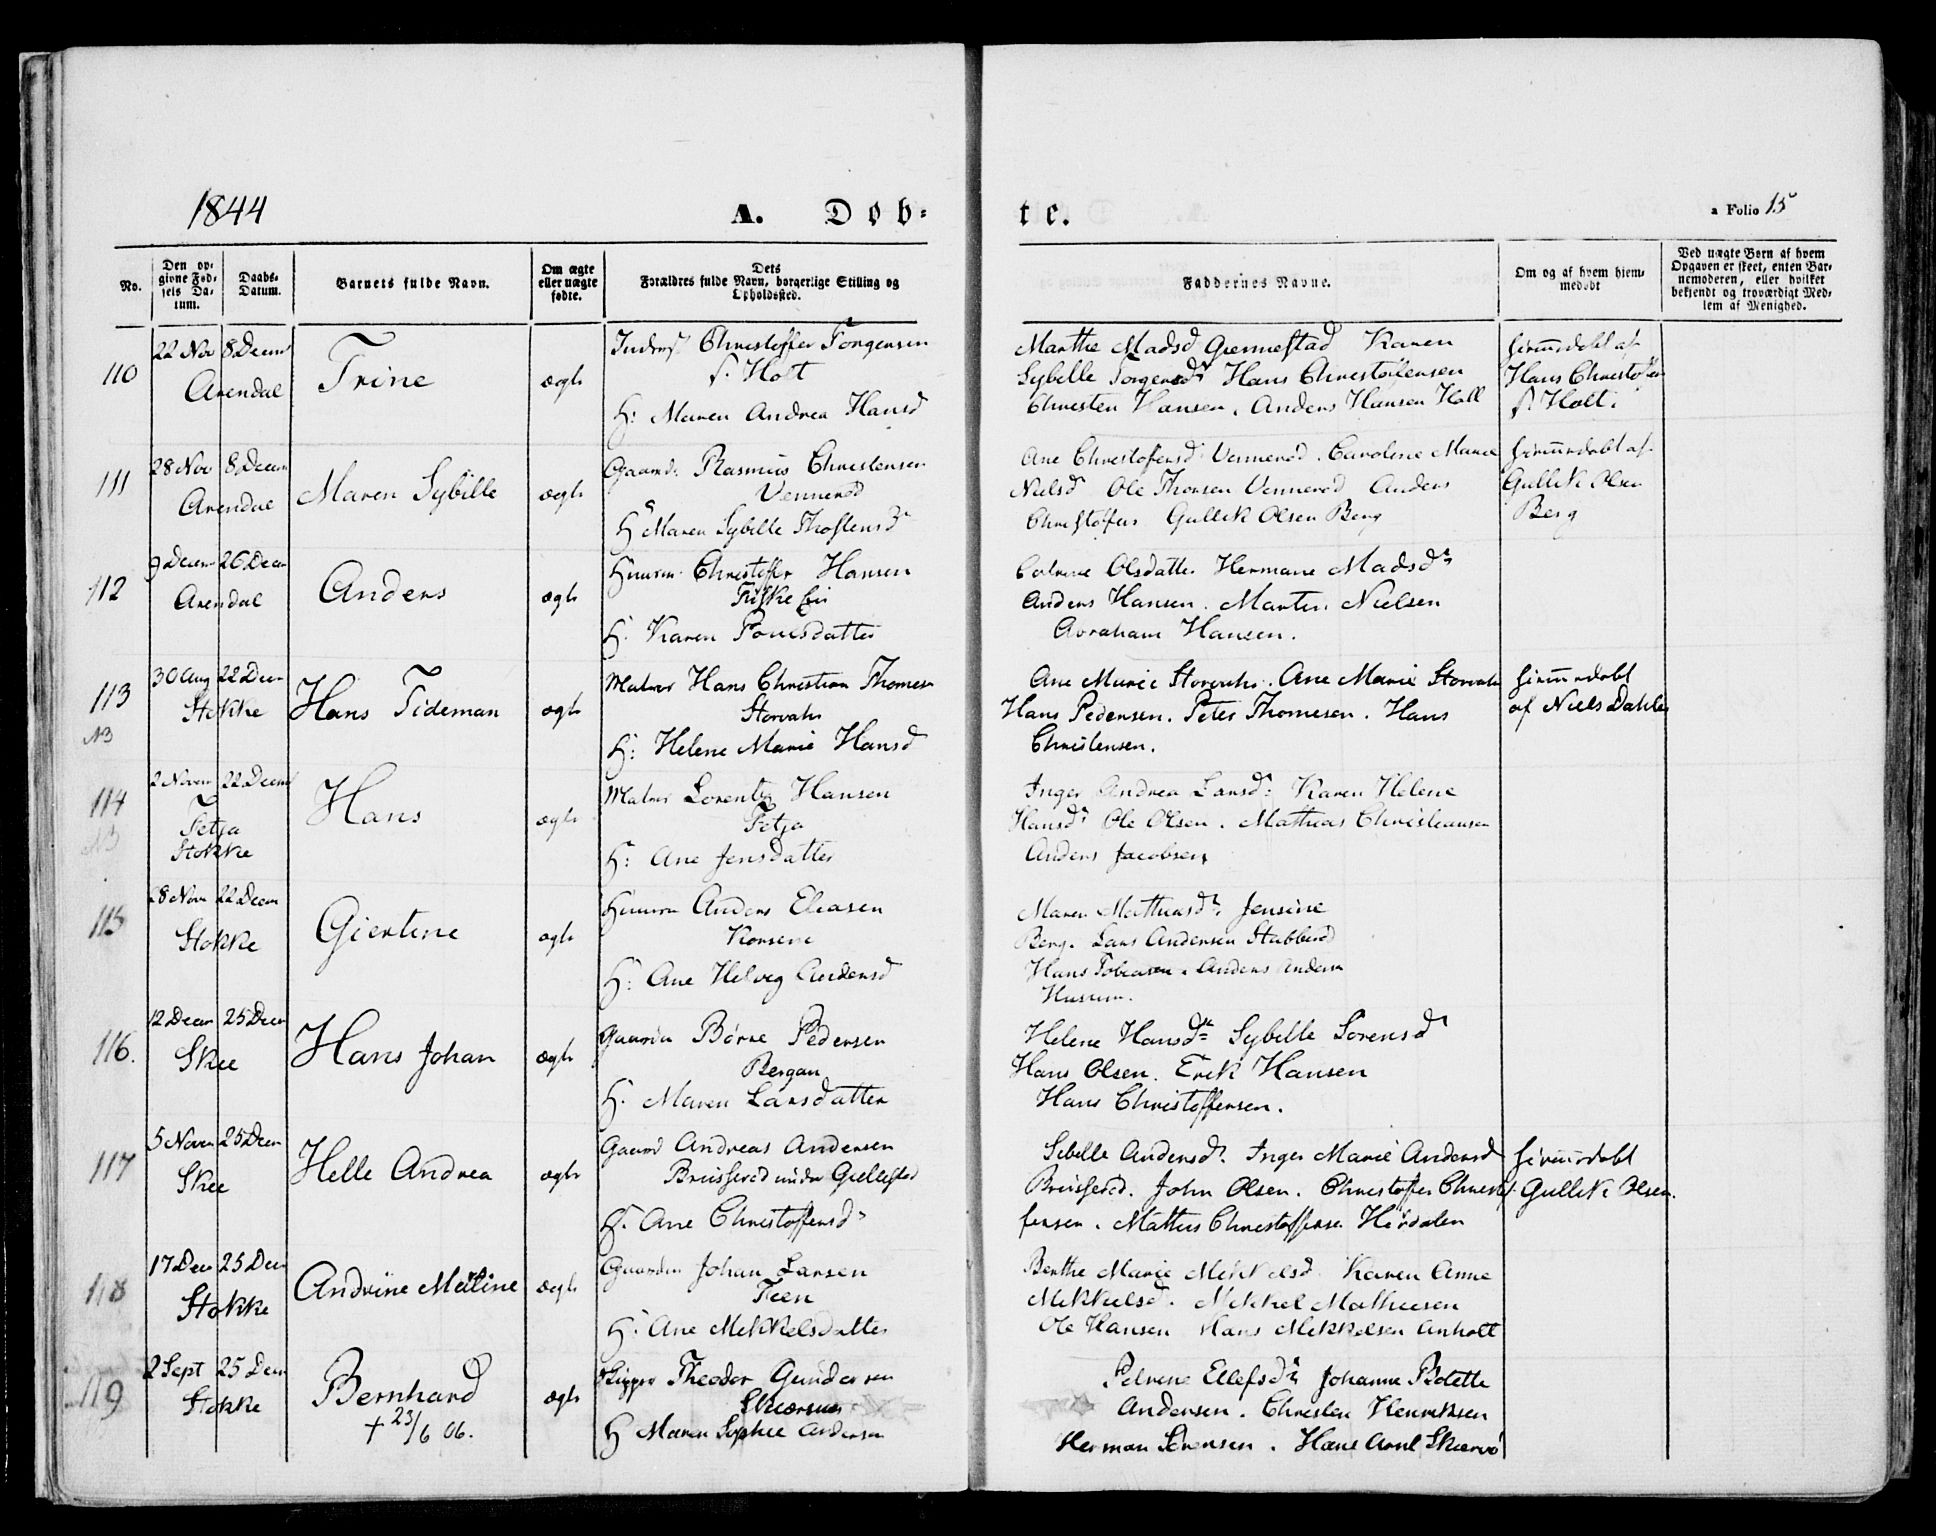 1844
A. Døb-
te.
a Folio 15
No.
Den op-
givne Fød-
sels Da-
tum.
Daabs-
Datum.
Barnets fulde Navn.
Om ægte
eller uægte
fødte.
Dets
Forældres fulde Navn, borgerlige Stilling og
Opholdssted.
Faddernes Navne.
Om og af hvem hjem-
medøbt
Ved uægte Børn af hvem
Opgaven er skeet, enten Bar-
nemoderen, eller hvilket
bekjendt og troværdigt Med-
lem af Menighed.
110
22 Nov 8 Decem
Arendal
Trine
ægte
Christoffer Torgersen
Holt
H: Maren Andrea Hansd
Marthe Madsd Karen
Sybelle Hans Christoffersen
Christen Hansen. Anders Hansen Holt
hjemmedøbt af
Hans Christoffersen
Holt.
111
28 Nov 8 Decem
Arendal
Maren Sybille
ægte
Gaard: Rasmus Christensen
Vennerød
H Maren Sybelle
Ane Christofersd Vennerød. Caroline Marie
Nielsd Ole Thorsen Vennerød Anders
Christofers Gullik Olsen Berg
hjemmedøbt af
Gullik Olsen
Berg
112
9 Decem 26 Decem
Arendal
Anders
ægte
Huusm Christoffer Hansen
H. Karen Povelsdatter
Olsdatter Hermane Madsdr
Anders Hansen. Martin Nielsen
Avraham Hansen.
113
30 Aug 22 Decem
Stokke
NB
Hans Tideman
ægte
Matros Hans Christian Thomesen
Storvahr
H: Helene Marie Hansd
Ane Marie Storvahr. Ane Marie Storvahr
Hans Pedersen. Peter Thomesen. Hans
Christensen.
hjemmedøbt
af Niels Dahler
114
NB
2 Novem 22 Decem
Fetja
Stokke
Hans
ægte
Matros Lorentz Hansen
Fetja
H: Ane Jensdatter
Inger Andrea Larsd: Karen Helene
Hansdr Ole Olsen. Mathias Christiansen
Anders Jacobsen
115
28 Novem 22 Decem
Stokke
Giertine
ægte
Huusm Anders Eliasen
Korsene
H: Ane Helvig Andersd
Maren Mathiasdr. Jensine
Berg. Lars Andersen
Hans Tobiasen. Anders Andersen
116.
12 Decem 25 Decem
Skee
Hans Johan
ægte
Gaardm Børre Pedersen
Bergan
H. Maren Larsdatter
Helene Hansdr Sybelle Sorensdr
Hans Olsen. Erik Hansen
Hans Christoffersen.
117
5 Novem 25 Decem
Skee
Helle Andrea
ægte
Gaardm Andreas Andersen
under Giellestad
H. Ane Christoffersdr
Sibelle Andersdr. Inger Marie Andersd
John Olsen. Christoffer Christof-
fersen. Mattis Christoffersen
hjemmedøbt
Gullik Olsen.
118
17 Decem 25 Decem
Stokke
Andrine Matine
ægte
Gaardm Johan Larsen
Feen
H: Ane Mikkelsdatter
Berthe Marie Mikkelsd. Karen Anne
Mikkelsd. Mikkel Mathiesen
Ole Hansen Hans Mikkelsen Anholt
119
2 Sept 25 Decem
Stokke
Bernhard
+ 23/6 06.
ægte
Skipper Theodor Gundersen
H Maren Sophie Andersen
Petrine Ellefsdr Johanne
Andersen. Christen Henriksen
Herman Sørensen.